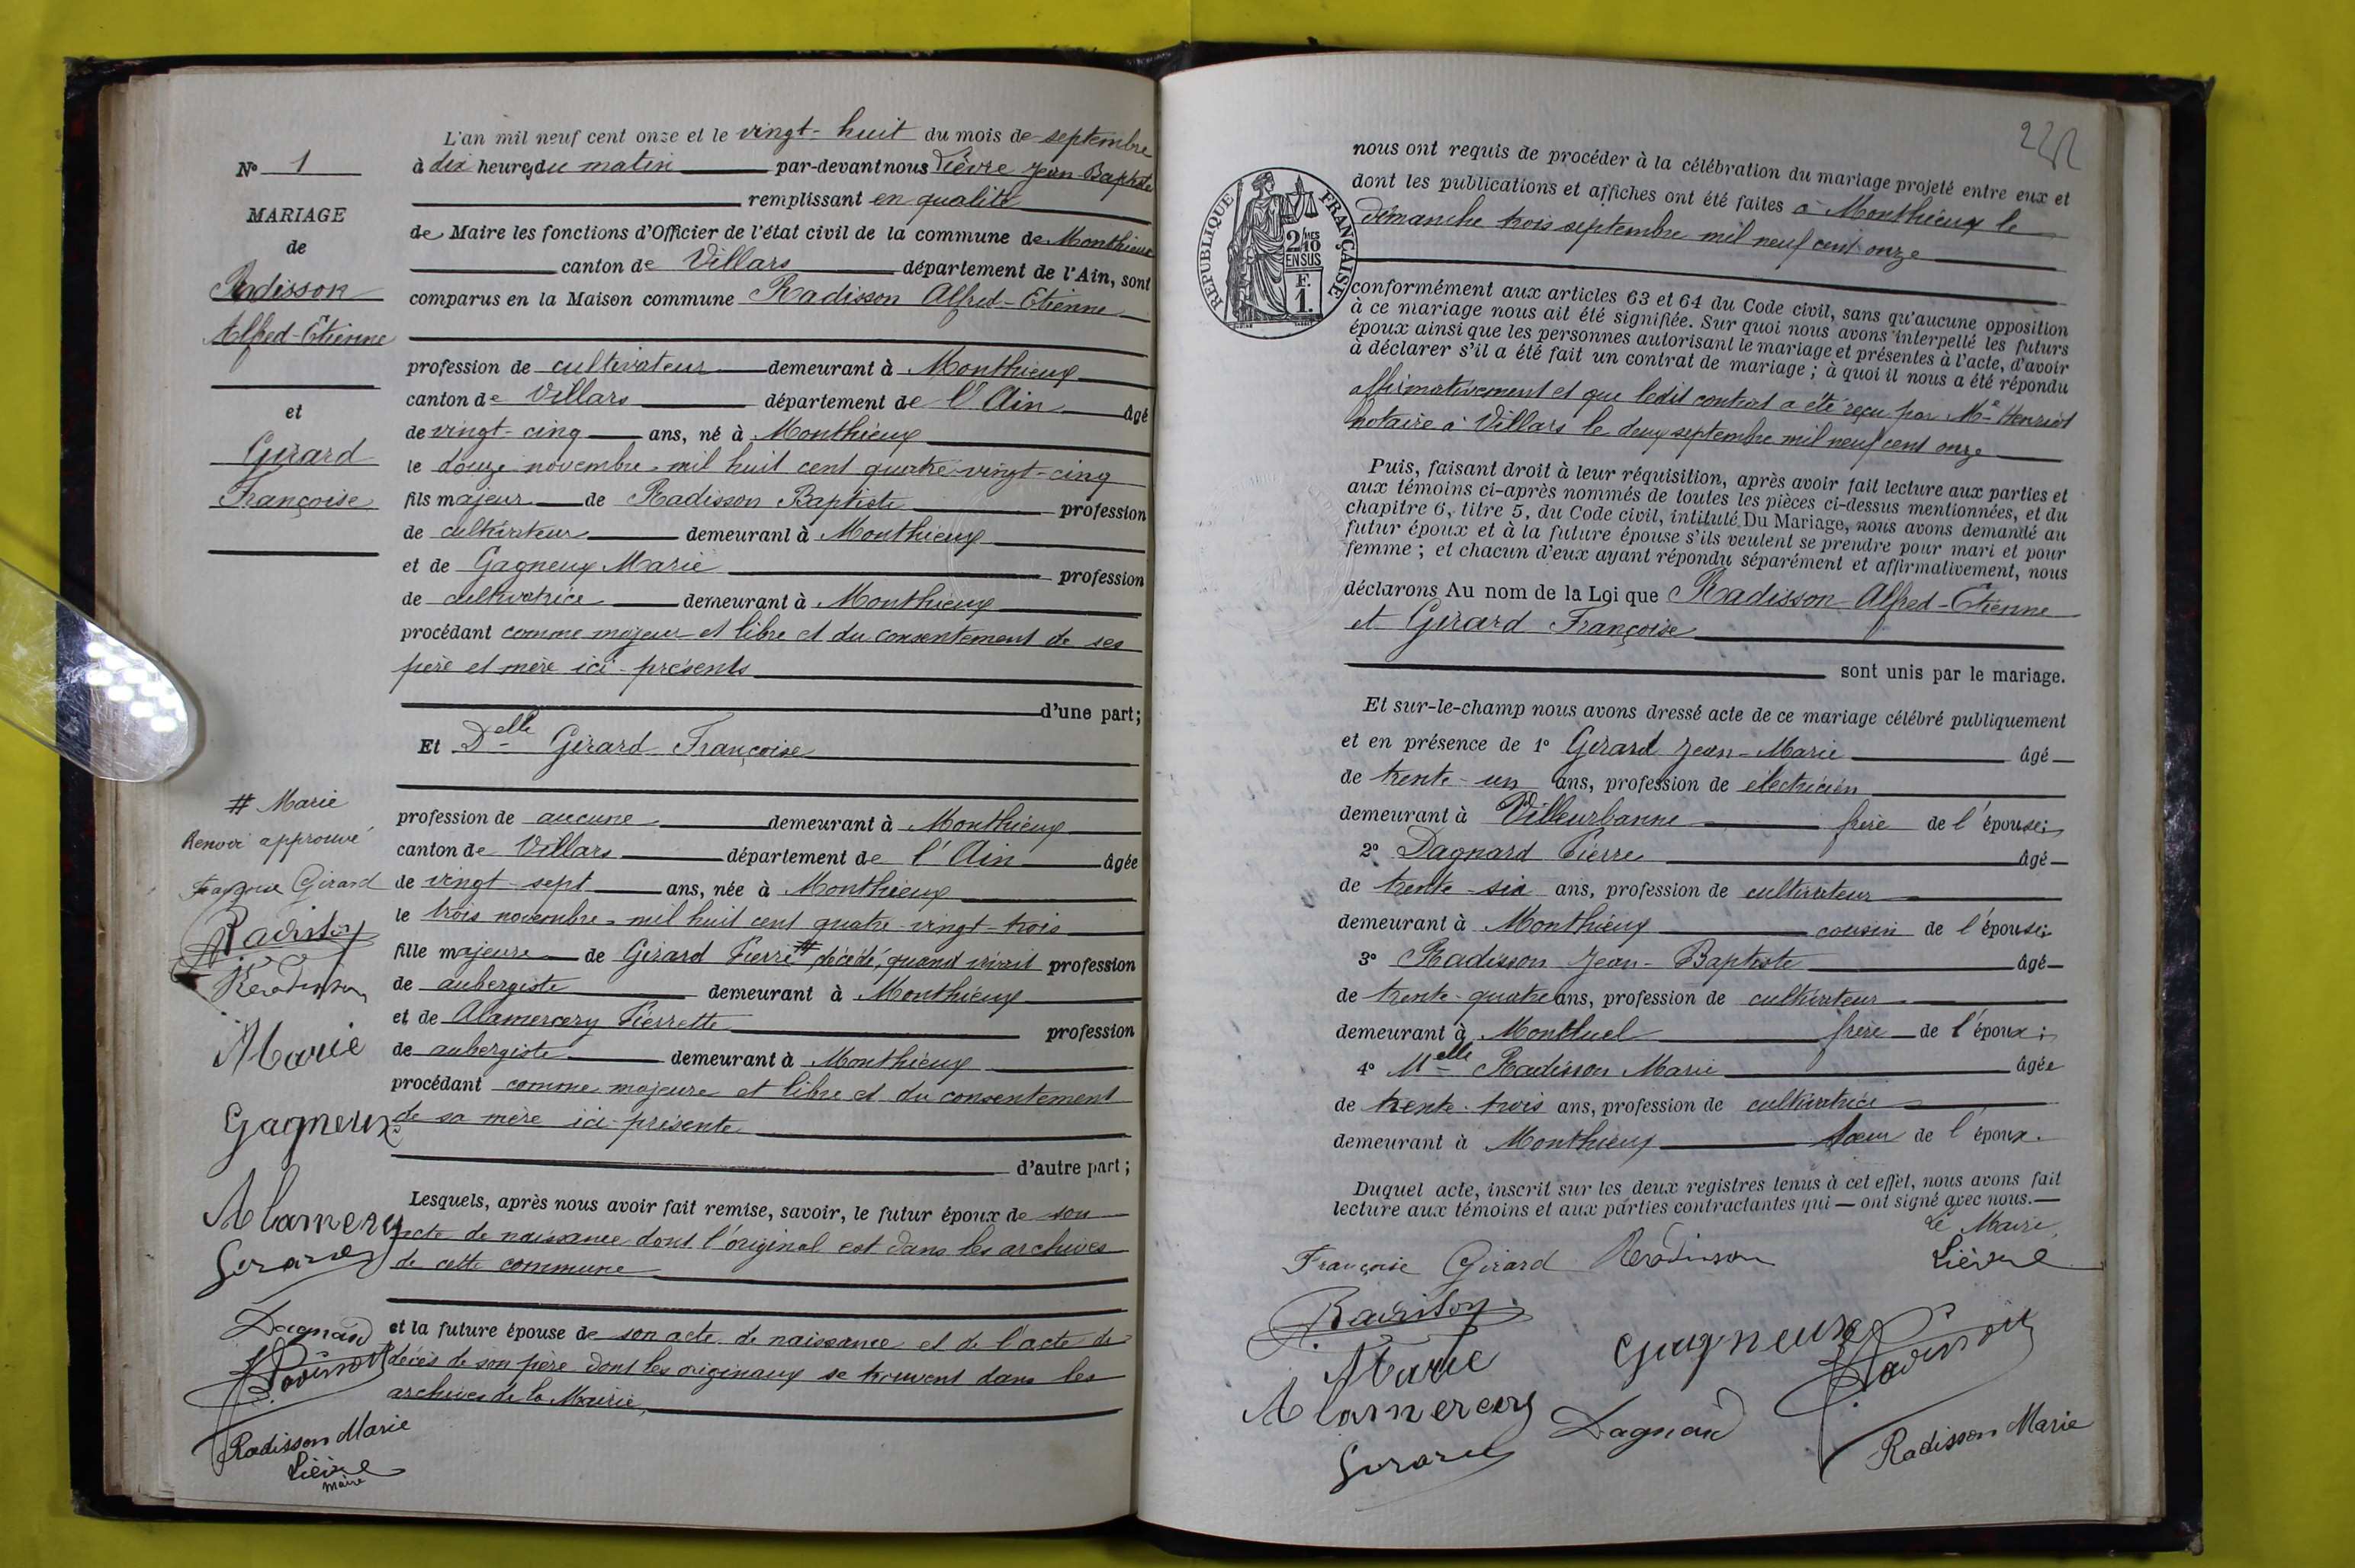 L'an mil neuf cent onze et le vingt-huit du mois de septembre
N° 1
à dix heures du matin par-devant nous Lièvre Jean-Baptiste
remplissant en qualité
MARIAGE
de Maire les fonctions d'Officier de l'état civil de la commune de Monthieux
de
canton de Villars département de l'Ain, sont
Radisson
comparus en la Maison commune Radisson Alfred-Etienne
Alfred-Etienne
profession de cultivateur demeurant à Monthieux
canton de Villars département de l'Ain âgé
et
de vingt-cinq ans, né à Monthieux
Girard
le douze novembre mil huit cent quatre-vingt-cinq
Françoise
fils majeur de Radisson Baptiste profession
de cultivateur demeurant à Monthieux
et de Gagneux Marie profession
de cultivatrice demeurant à Monthieux
procédant comme majeur et libre et du consentement de ses
père et mère ici-présents
d'une part;
Et Delle Girard Françoise
# Marie
profession de aucune demeurant à Monthieux
Renvoi approuvé
canton de Villars département de l'Ain âgée
Françoise Girard
de vingt-sept ans, née à Monthieux
le trois novembre mil huit cent quatre-vingt-trois
fille majeure de Girard Pierre # décédé, quand vivait profession
Radisson
de aubergiste demeurant à Monthieux
et de Alamercery Pierrette profession
Marie
de aubergiste demeurant à Monthieux
procédant comme majeure et libre et du consentement
Gagneux
de sa mère ici-présente
d'autre part;
Lesquels, après nous avoir fait remise, savoir, le futur époux de son
Alamercery
acte de naissance dont l'original est dans les archives
Girard
de cette commune
Dagnard
et la future épouse de son acte de naissance et de l'acte de
décès de son père dont les originaux se trouvent dans les
archives de la Mairie,
Radisson Marie
Lièvre
maire
nous ont requis de procéder à la célébration du mariage projeté entre eux et
dont les publications et affiches ont été faites à Monthieux le
dimanche trois septembre mil neuf cent onze
RÉPUBLIQUE FRANÇAISE
2/10 MES
EN SUS
F.
1.
conformément aux articles 63 et 64 du Code civil, sans qu'aucune opposition
à ce mariage nous ait été signifiée. Sur quoi nous avons interpellé les futurs
époux ainsi que les personnes autorisant le mariage et présentes à l'acte, d'avoir
à déclarer s'il a été fait un contrat de mariage; à quoi il nous a été répondu
affirmativement et que ledit contrat a été reçu par Me Henriot
notaire à Villars le deux septembre mil neuf cent onze
Puis, faisant droit à leur réquisition, après avoir fait lecture aux parties et
aux témoins ci-après nommés de toutes les pièces ci-dessus mentionnées, et du
chapitre 6, titre 5, du Code civil, intitulé Du Mariage, nous avons demandé au
futur époux et à la future épouse s'ils veulent se prendre pour mari et pour
femme; et chacun d'eux ayant répondu séparément et affirmativement, nous
déclarons Au nom de la Loi que Radisson Alfred-Etienne
et Girard Françoise
sont unis par le mariage.
Et sur-le-champ nous avons dressé acte de ce mariage célébré publiquement
et en présence de 1° Girard Jean-Marie âgé
de trente-un ans, profession de électricien
demeurant à Villeurbanne frère de l'épouse;
2° Dagnard Pierre âgé
de trente-six ans, profession de cultivateur
demeurant à Monthieux cousin de l'épouse;
3° Radisson Jean-Baptiste âgé
de trente-quatre ans, profession de cultivateur
demeurant à Montluel frère de l'époux;
4° Melle Radisson Marie âgée
de trente-trois ans, profession de cultivatrice
demeurant à Monthieux soeur de l'époux.
Duquel acte, inscrit sur les deux registres tenus à cet effet, nous avons fait
lecture aux témoins et aux parties contractantes qui ont signé avec nous.
Le Maire,
Françoise Girard Radisson Lièvre
Marie Gagneux
Alamercery Dagnard
Girard Radisson Marie